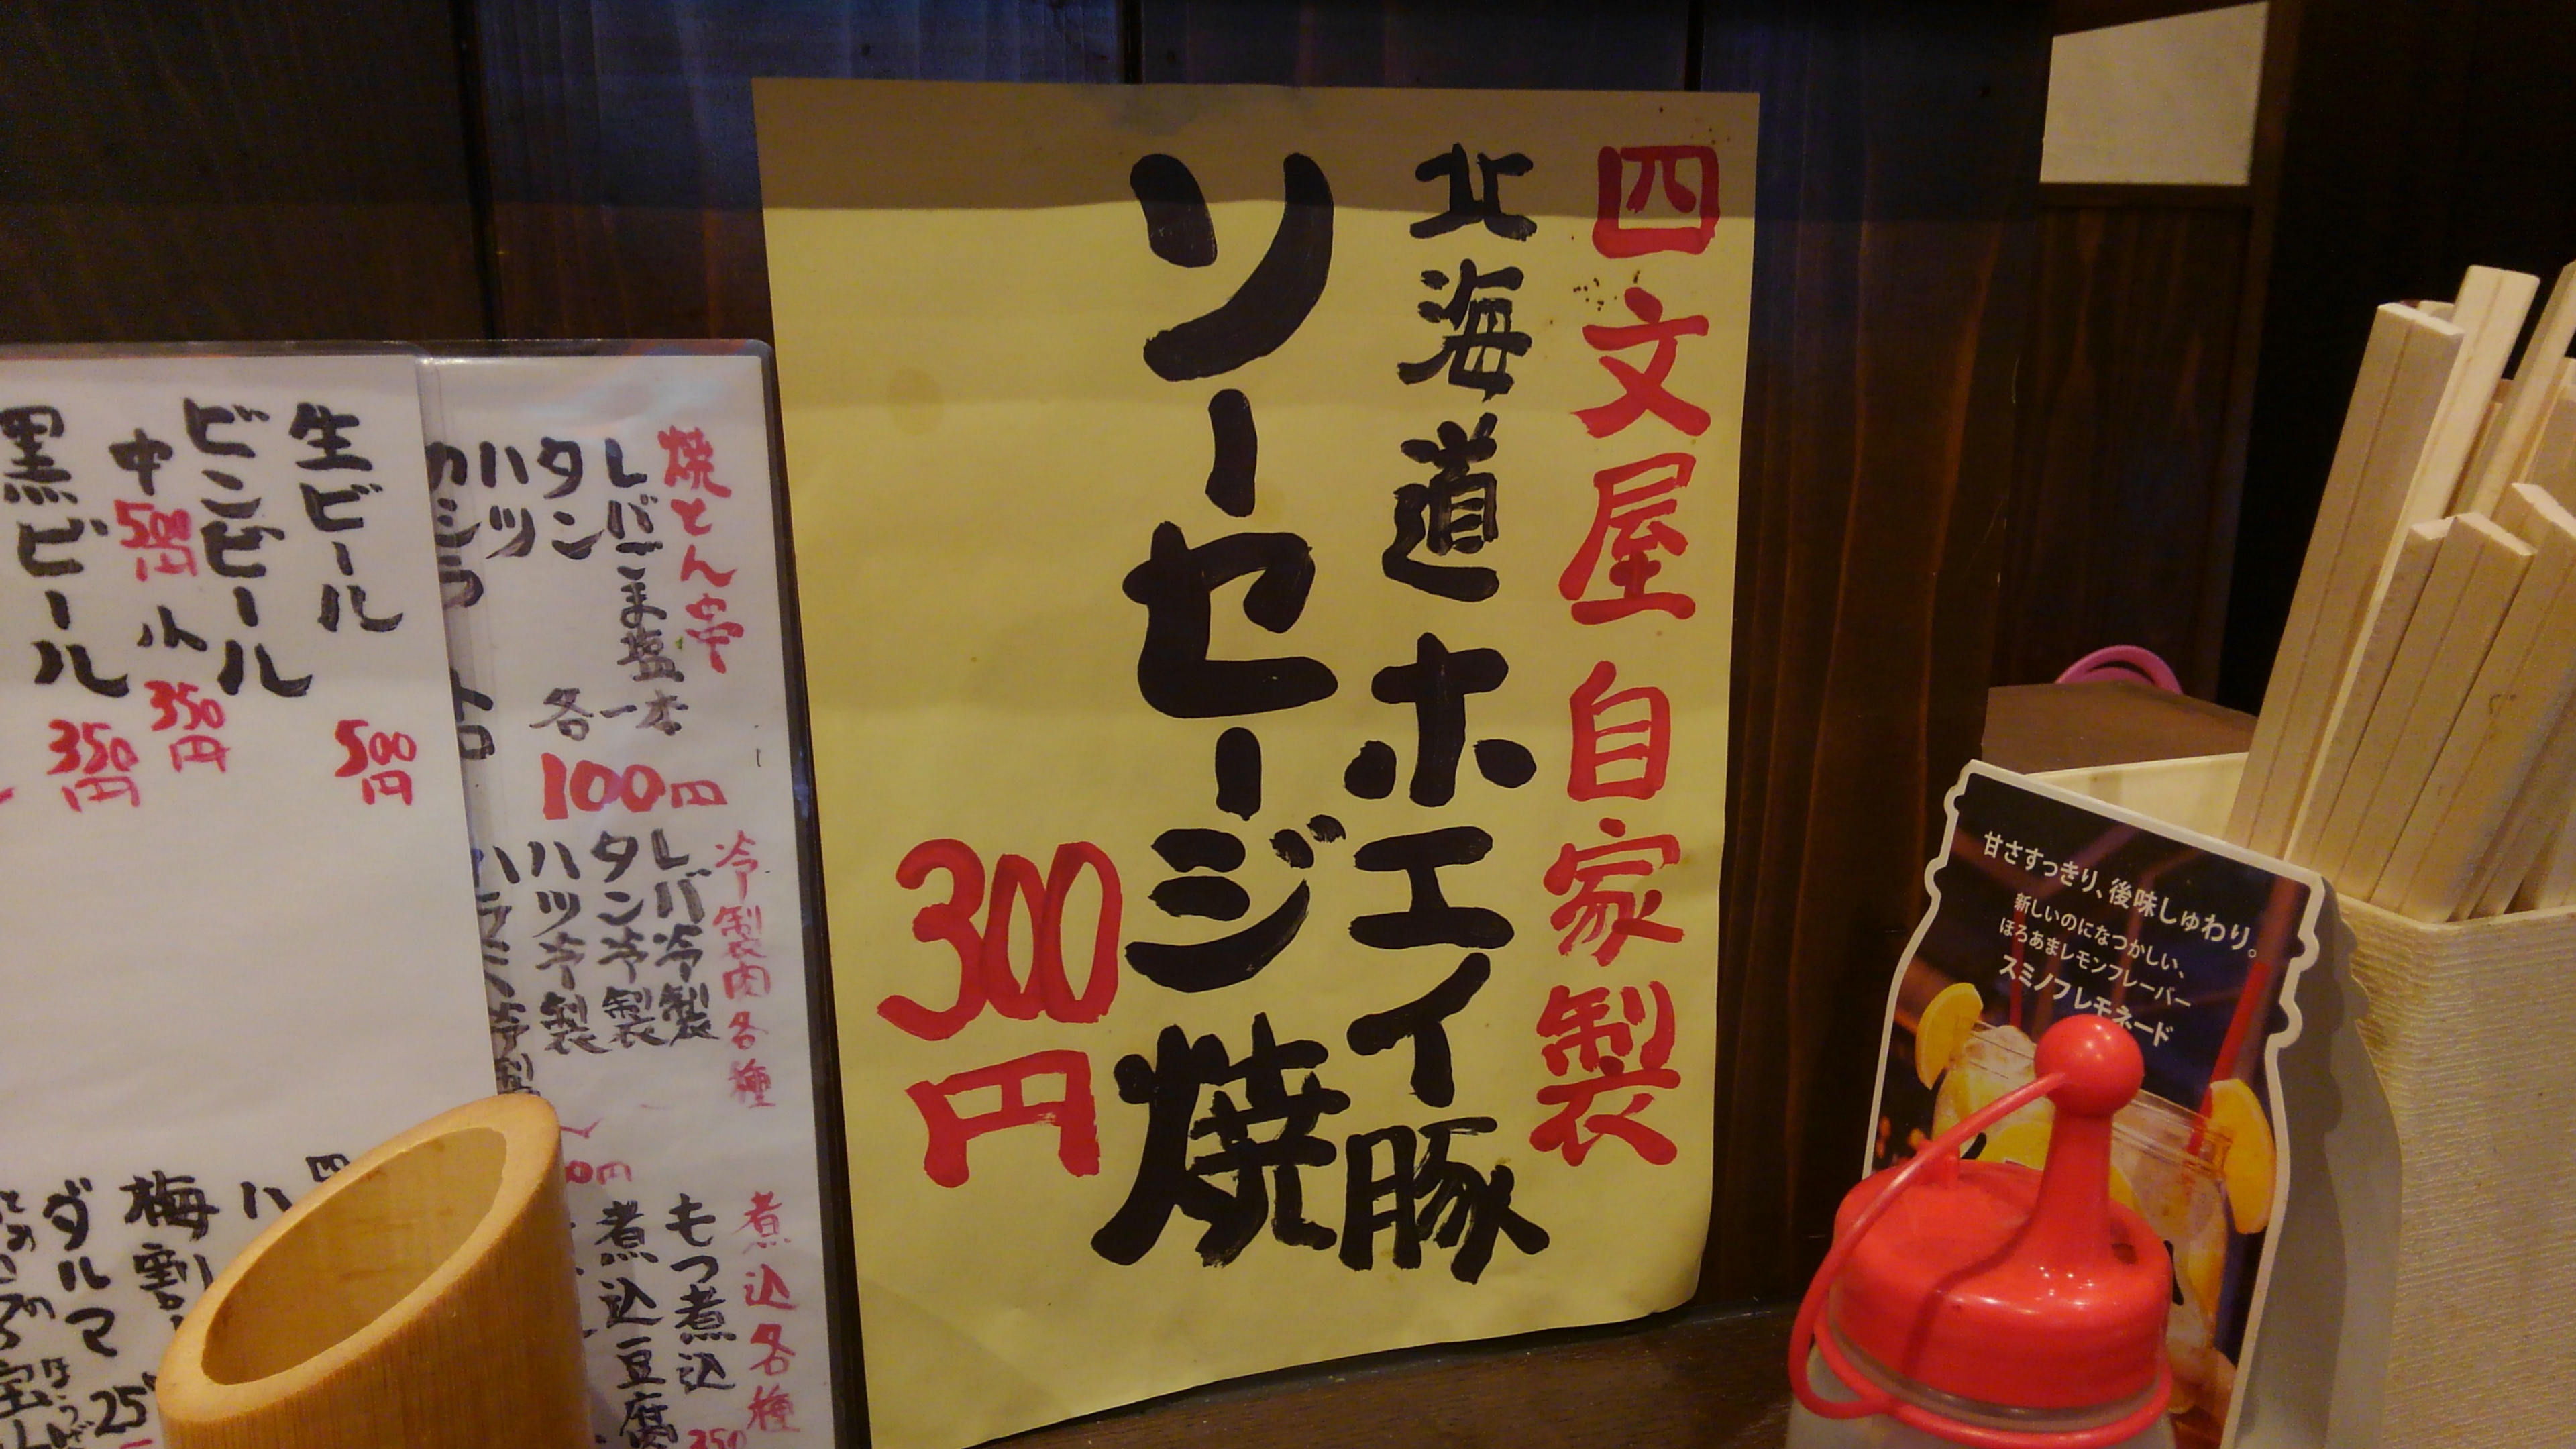 四文屋 自家製
北海道 ホエイ豚
ソーセージ 焼
300円
焼とん
レバ ごま塩
タン
ハツ
カシラ
各一本
100円
冷製肉各種
レバ冷製
タン冷製
ハツ冷製
煮込各種
もつ煮込
煮込豆腐
350
生ビール
500円
ビンビール
中 500円 小 350円
黒ビール
350円
梅割
ダルマ
25
甘さすっきり、後味しゅわり。
新しいのになつかしい、
ほろあまレモンフレーバー
スミノフレモネード